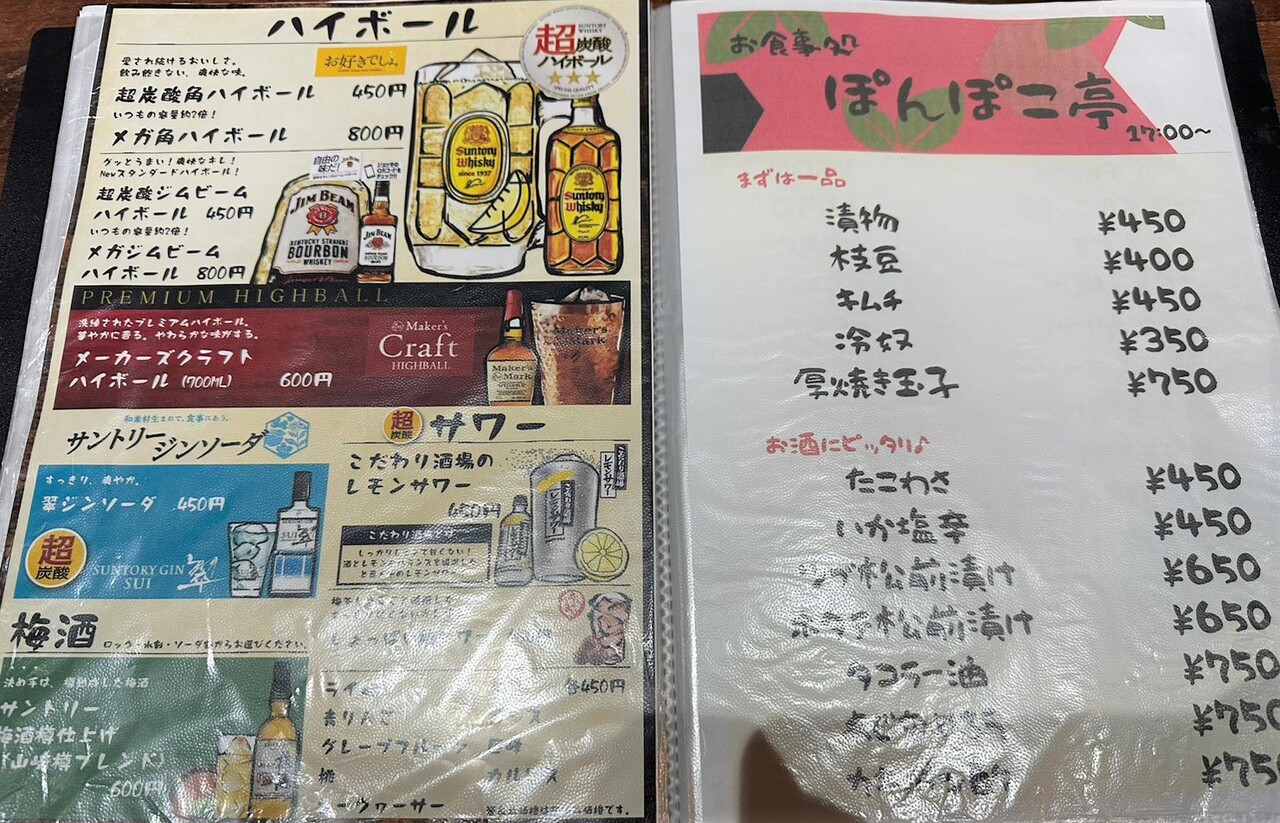 ハイボール
愛され続けるおいしさ。
飲み飽きない、爽快な味。
お好きでしょ。
超炭酸角ハイボール 450円
いつもの容量約2倍！
メガ角ハイボール 800円
SUNTORY WHISKY
超炭酸
ハイボール
SPECIAL QUALITY
Suntory
Whisky
since 1937
Suntory
Whisky
グッとうまい！爽快なキレ！
Newスタンダードハイボール！
超炭酸ジムビーム
ハイボール 450円
いつもの容量約2倍！
メガジムビーム
ハイボール 800円
自由の
味だ！
JIM BEAM
KENTUCKY STRAIGHT
BOURBON
WHISKEY
JIM BEAM
BOURBON
PREMIUM HIGHBALL
洗練されたプレミアムハイボール。
華やかに香る。やわらかな味がする。
メーカーズクラフト
ハイボール (700ML) 600円
Maker's
Craft
HIGHBALL
Maker's
Mark
Maker's
Mark
和素材生まれで、食事にあう。
サントリージンソーダ
すっきり、爽やか。
翠ジンソーダ 450円
超
炭酸
SUNTORY GIN
SUI 翠
SUNTORY GIN
SUI
翠
梅酒
ロック・水割・ソーダ割からお選びください。
サントリー
梅酒樽仕上げ
(山崎樽ブレンド)
600円
超
炭酸
サワー
こだわり酒場の
レモンサワー
450円
こだわり酒場の
レモンサワー
こだわり酒場の
レモンサワー
各450円
グレープフルーツ 巨峰
桃 カルピス
お食事処
ぽんぽこ亭
17:00～
まずは一品
漬物 ¥450
枝豆 ¥400
キムチ ¥450
冷奴 ¥350
厚焼き玉子 ¥750
お酒にピッタリ♪
たこわさ ¥450
いか塩辛 ¥450
松前漬け ¥650
松前漬け ¥650
タコラー油 ¥750
¥750
¥750